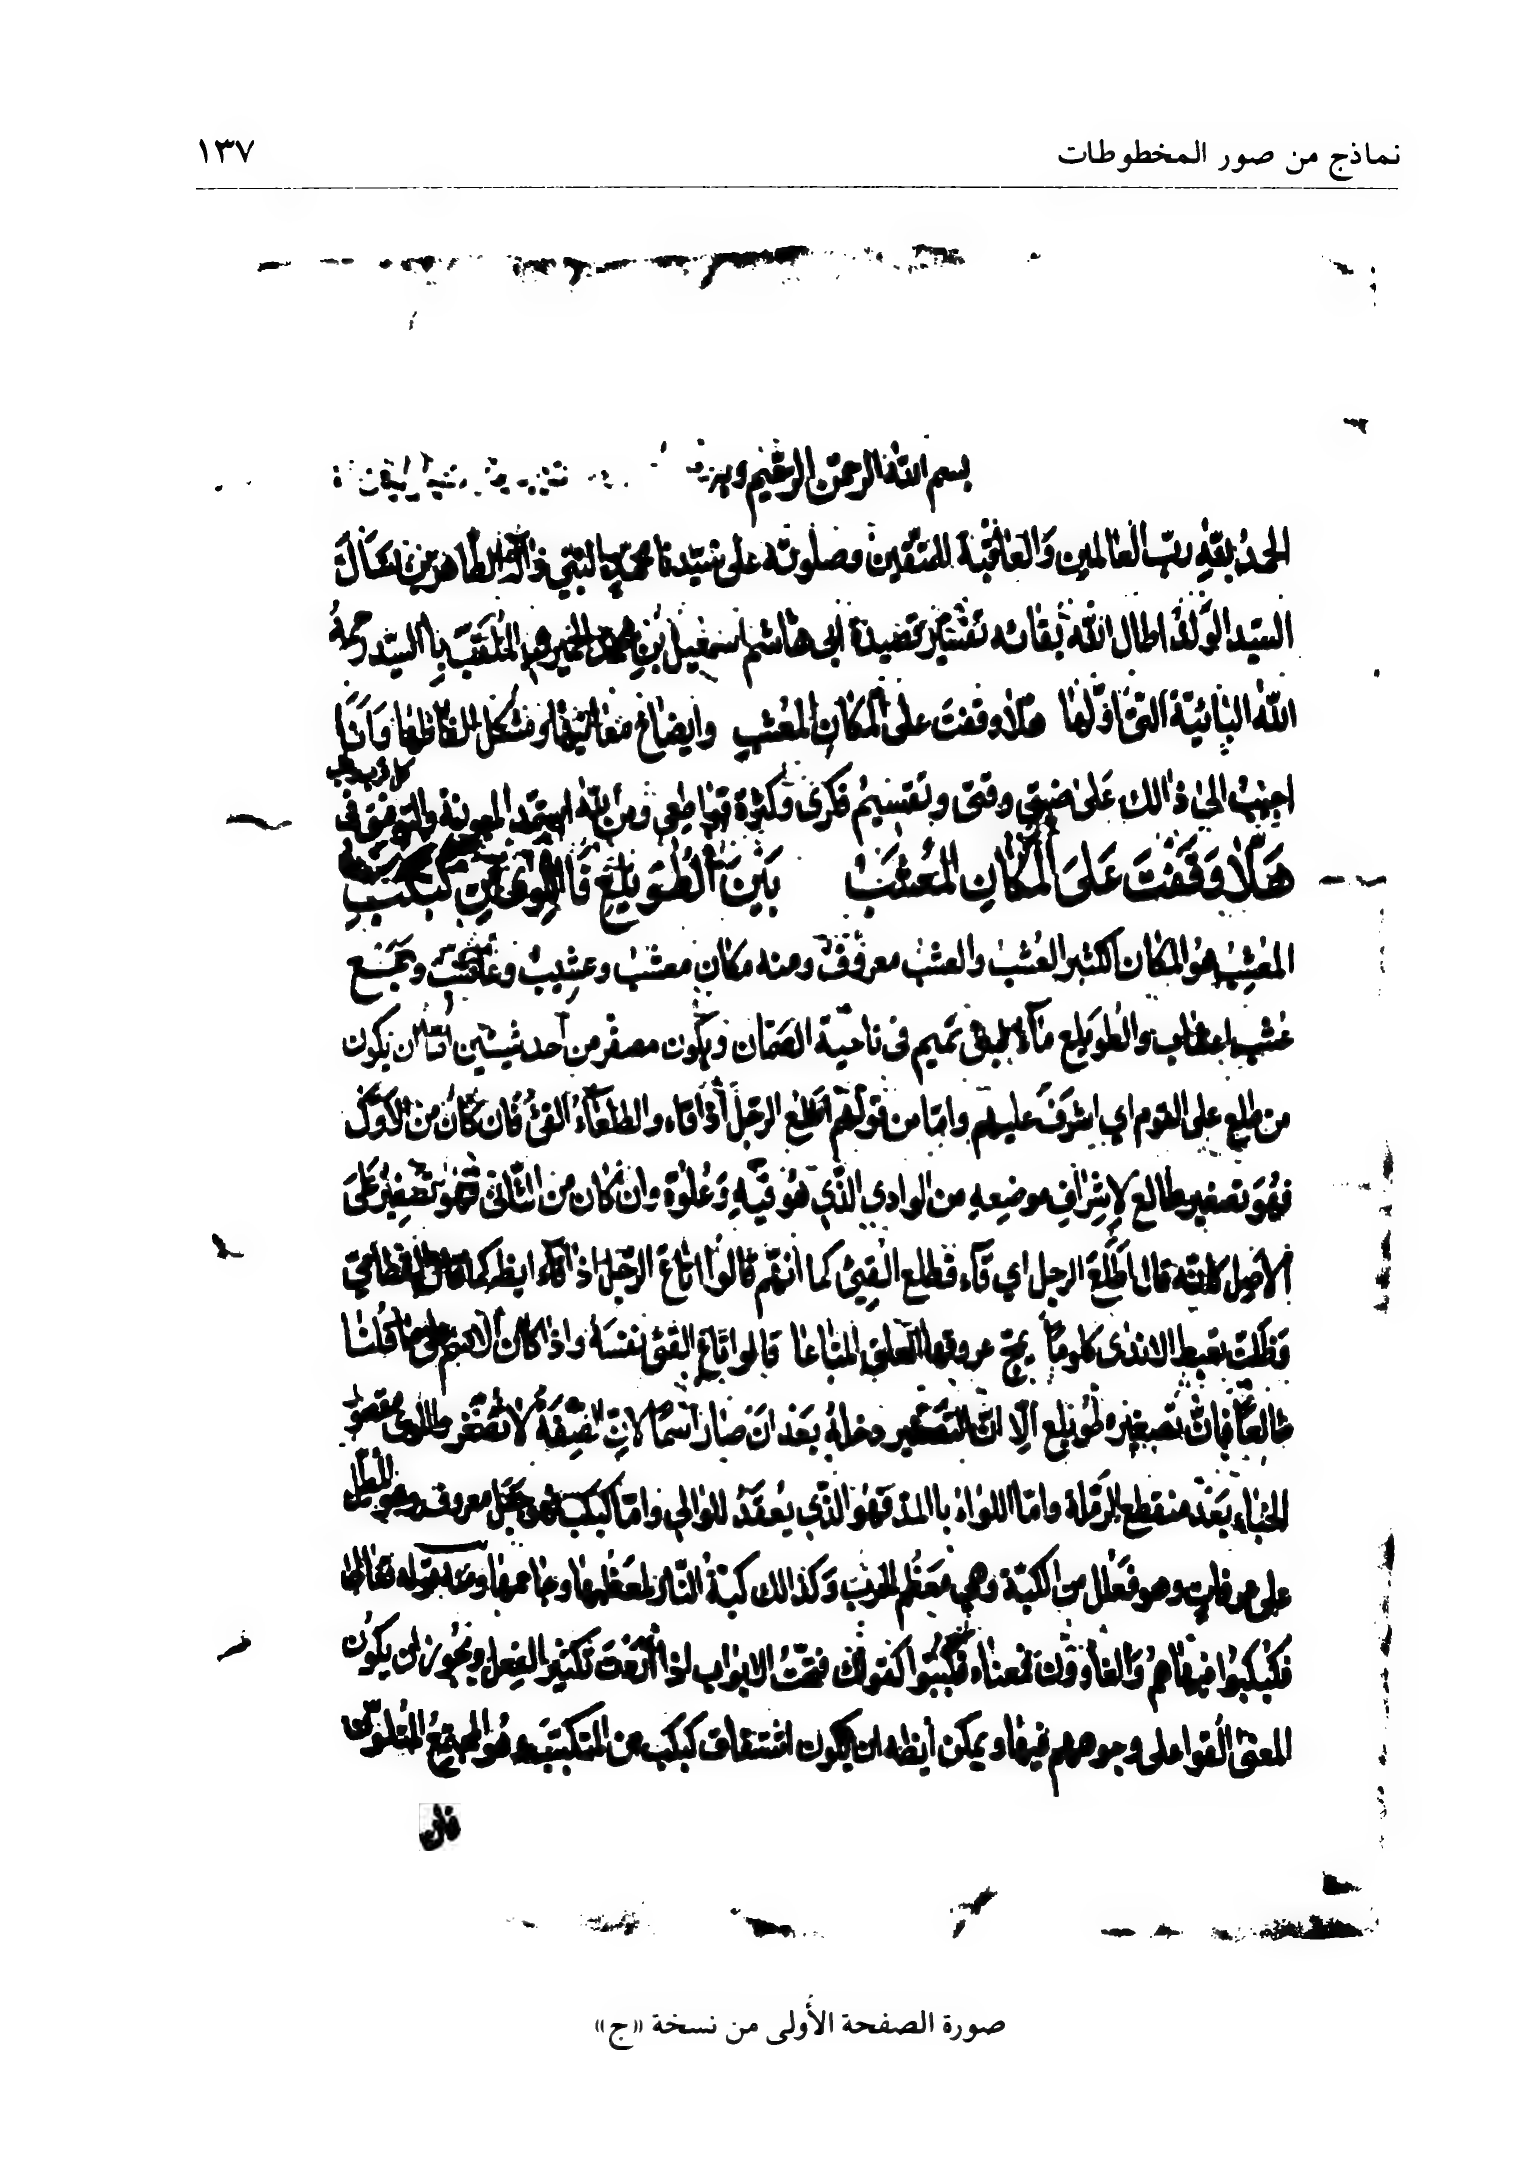 نماذج من صور المخطوطات
١٣٧
بسم الله الرحمن الرحيم وبه
الحمدُ لله ربّ العالمين وَالعَاقبة للمتّقين وصلوته على سيّدنا محمدٍ النبي وآله الطاهرين سَألَ
السيّد الوَلدُ اطال الله بقائه تفسير قصيدة ابى هاشم اسمعيل بن محمد الحميرى المُلقّب باالسيّد رحمهُ
الله البائيّة التى اوّلها هَلا وقفتَ على المكان المُعشب وايضاح معانيها ومشكل الفاظها وَانَا
اجيبُ الى ذالك عَلى ضيق وقتى وتقسيم فكرى وكثرة قواطعى ومن الله استمدّ المعونة والتوفيق فى
كل
هَلّا وَقَفتَ عَلىَ المكانِ المُعشبْ بَينَ الطُوَيلعِ فَاللّوى مِن كَبكبِ
المعُشِبْ هوُ المكان الكثير العُشبْ والعشب معروف ومنه مكان معشبْ وعشيبْ وعاشبْ ويجمَع
عُشب اعشاب والطويلع مآء لبنى تميم فى ناحية الصَمّان ويكون مصغر من احد شيئين اما ان يكون
من طلع على القوم اي اشرَفَ عليهم وامّا من قولهم اطلع الرجُل اذا قاء والطلعاء القئُ فان كان من الاوّل
فهُوَ تصغير طالع لاِشرافِ موضعِهِ من الوادى الذّي هُوَ فيهِ وَعُلوّه وان كان من الثانى فهو تصغير عَلَى
الاصل كانّه قال اطّلعَ الرجل اي قآء فطلع القيئ كما انهّم قالوا اتاعَ الرّجُل اذا قآء ايظه كما قال القطامى
وَظلّت تعبط الايدى كلومًا يمجّ عروقها العلق المتاعا قالوا تاعَ القئ نفسَهُ واذا كان الاسم على ما قلنا
طالعًا فانّ تصغيره طويلع اِلّا انّ التصغير دخلهُ بَعدَ انَ صَار اسمًا لانّ الصفَةَ لا تصَغر واللوى مقصور
الخباء بَعْد منقطع الرّملة وامّا اللواءُ باالمدّ فهوُ الذّي يُعقَدُ للوالي وامّا كبكب فهو جبَل معروف وهو المطلّ
على عرفاتٍ وهو فَعْلل من الكبّة وهي مُعَظم الحربِ وَكذالك كبّة النّار لمعَظمِها وجاحمها ومنه قوله تعالى
فكبْكبوُا فيها هُم وَالغاوُونَ فمعناه فكُبِبُوا كقولك فتحّتُ الابواب اذا اَرَدتَ تكثير الفِعل ويجوز ان يكون
المعنى اُلقوا على وجوههم فيها ويمكن ايظه ان يكون اشتقاق كبكب من المتكبّب وهُو المجتمع المُتلوّن
فان
صورة الصفحة الأولى من نسخة «ج»